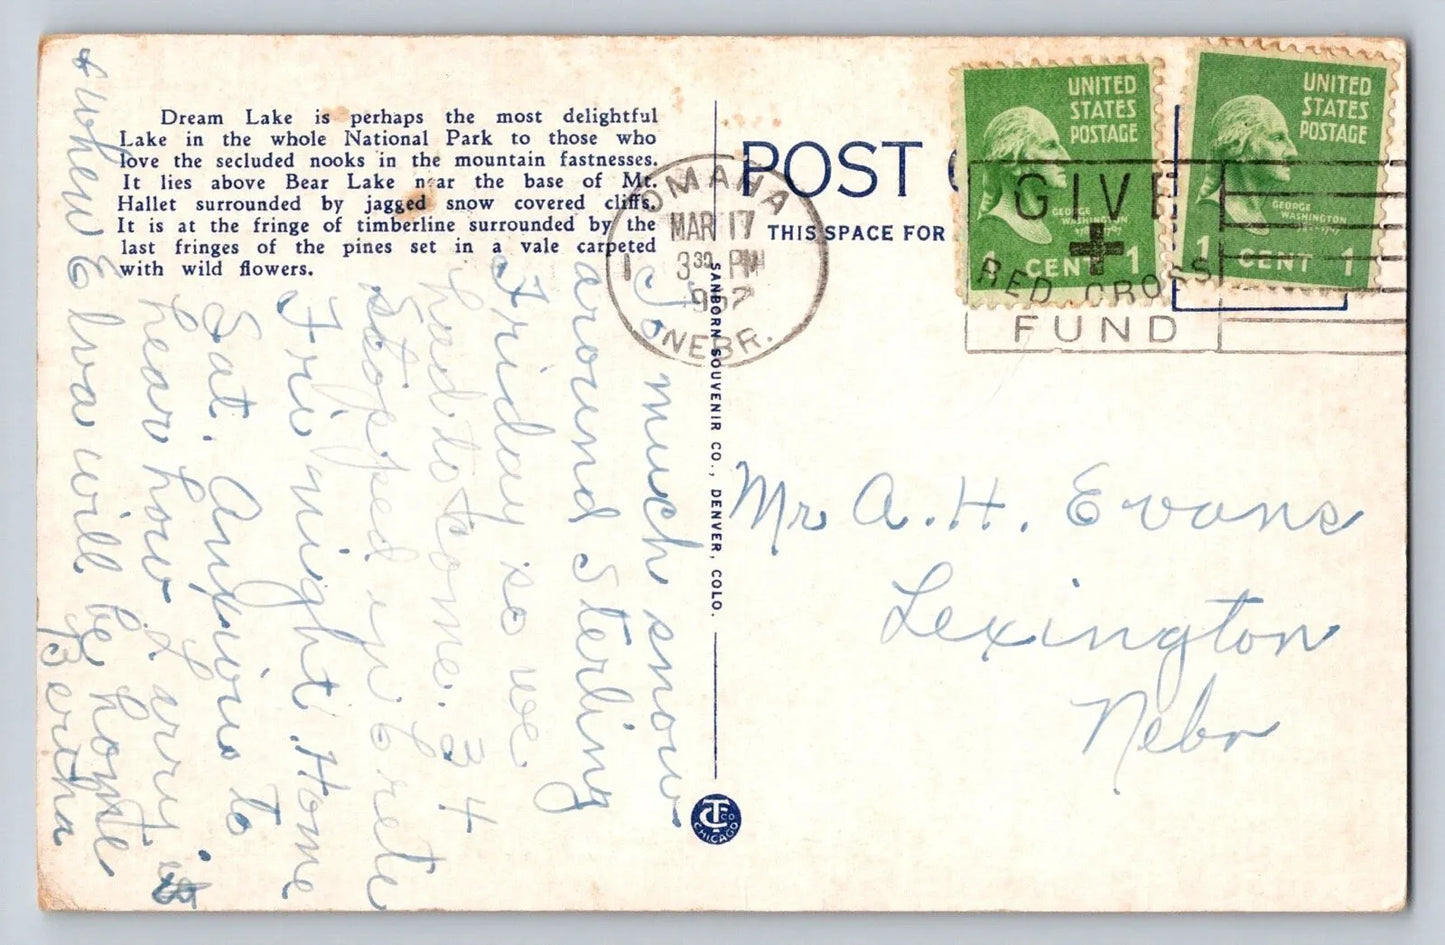 Dream Lake is perhaps the most delightful
Lake in the whole National Park to those who
love the secluded nooks in the mountain fastnesses.
It lies above Bear Lake near the base of Mt.
Hallet surrounded by jagged snow covered cliffs.
It is at the fringe of timberline surrounded by the
last fringes of the pines set in a vale carpeted
with wild flowers.
So much snow
around Sterling
Friday so we
had to come. 34
Stopped in Crete
Fri night. Home
Sat. Anxious to
hear how Larry is
& when Elva will be home
Bertha
SANBORN SOUVENIR CO., DENVER, COLO.
CT CO
CHICAGO
POST
THIS SPACE FOR
OMAHA
MAR 17
3 30 PM
1952
NEBR.
1
UNITED
STATES
POSTAGE
GEORGE
WASHINGTON
1 CENT 1
UNITED
STATES
POSTAGE
GEORGE
WASHINGTON
1 CENT 1
GIVE
RED CROSS
FUND
Mr A. H. Evans
Lexington
Nebr